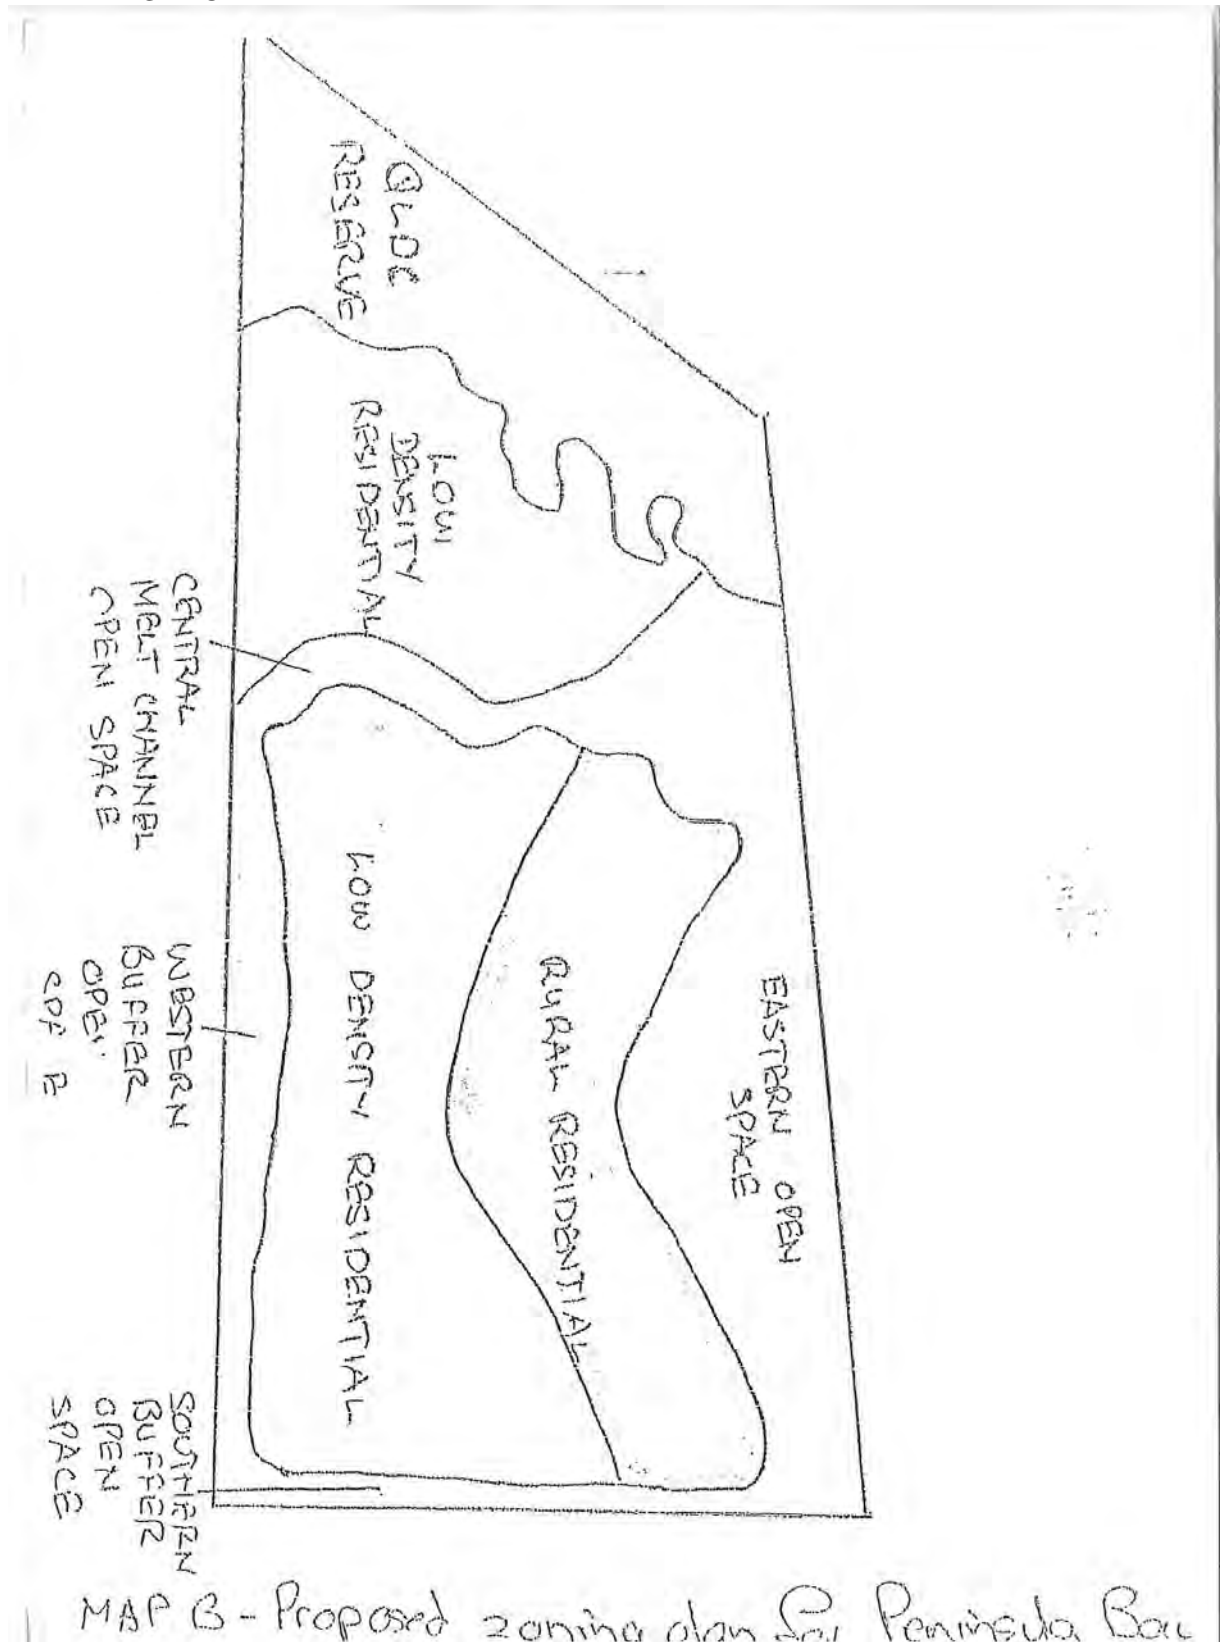 QLDC
RESERVE
LOW
DENSITY
RESIDENTIAL
CENTRAL
MELT CHANNEL
OPEN SPACE
LOW DENSITY RESIDENTIAL
RURAL RESIDENTIAL
EASTERN OPEN
SPACE
WESTERN
BUFFER
OPEN
SOUTHERN
BUFFER
OPEN
SPACE
MAP B - Proposed zoning plan for Peninsula Bay